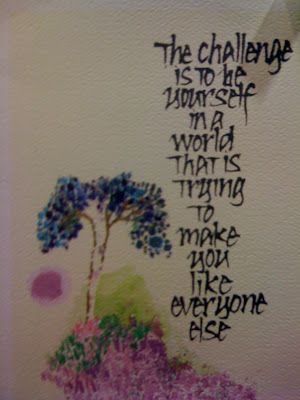 The challenge
is to be
yourself
in a
world
that is
trying
to
make
you
like
everyone
else